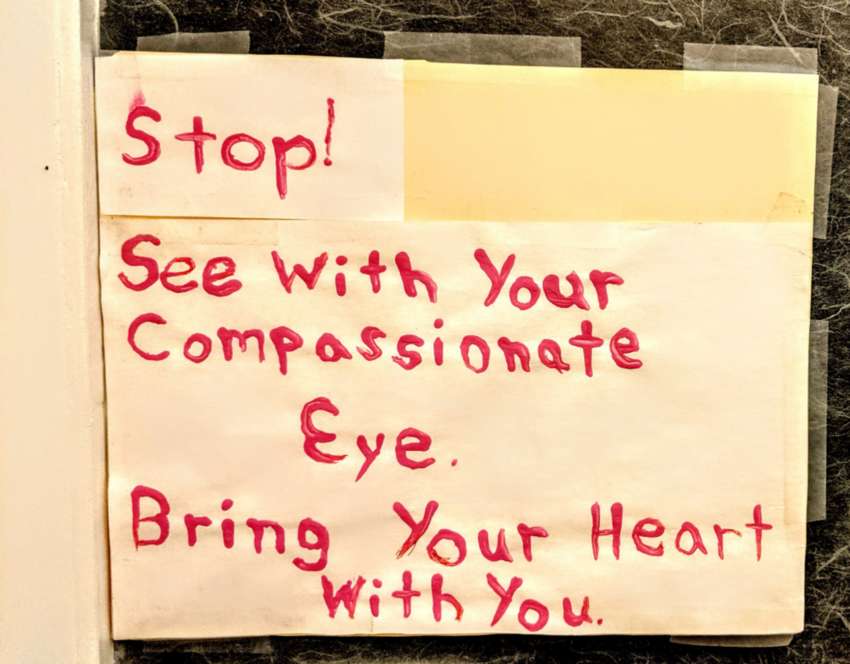 Stop!
See With Your
Compassionate
Eye.
Bring Your Heart
With You.